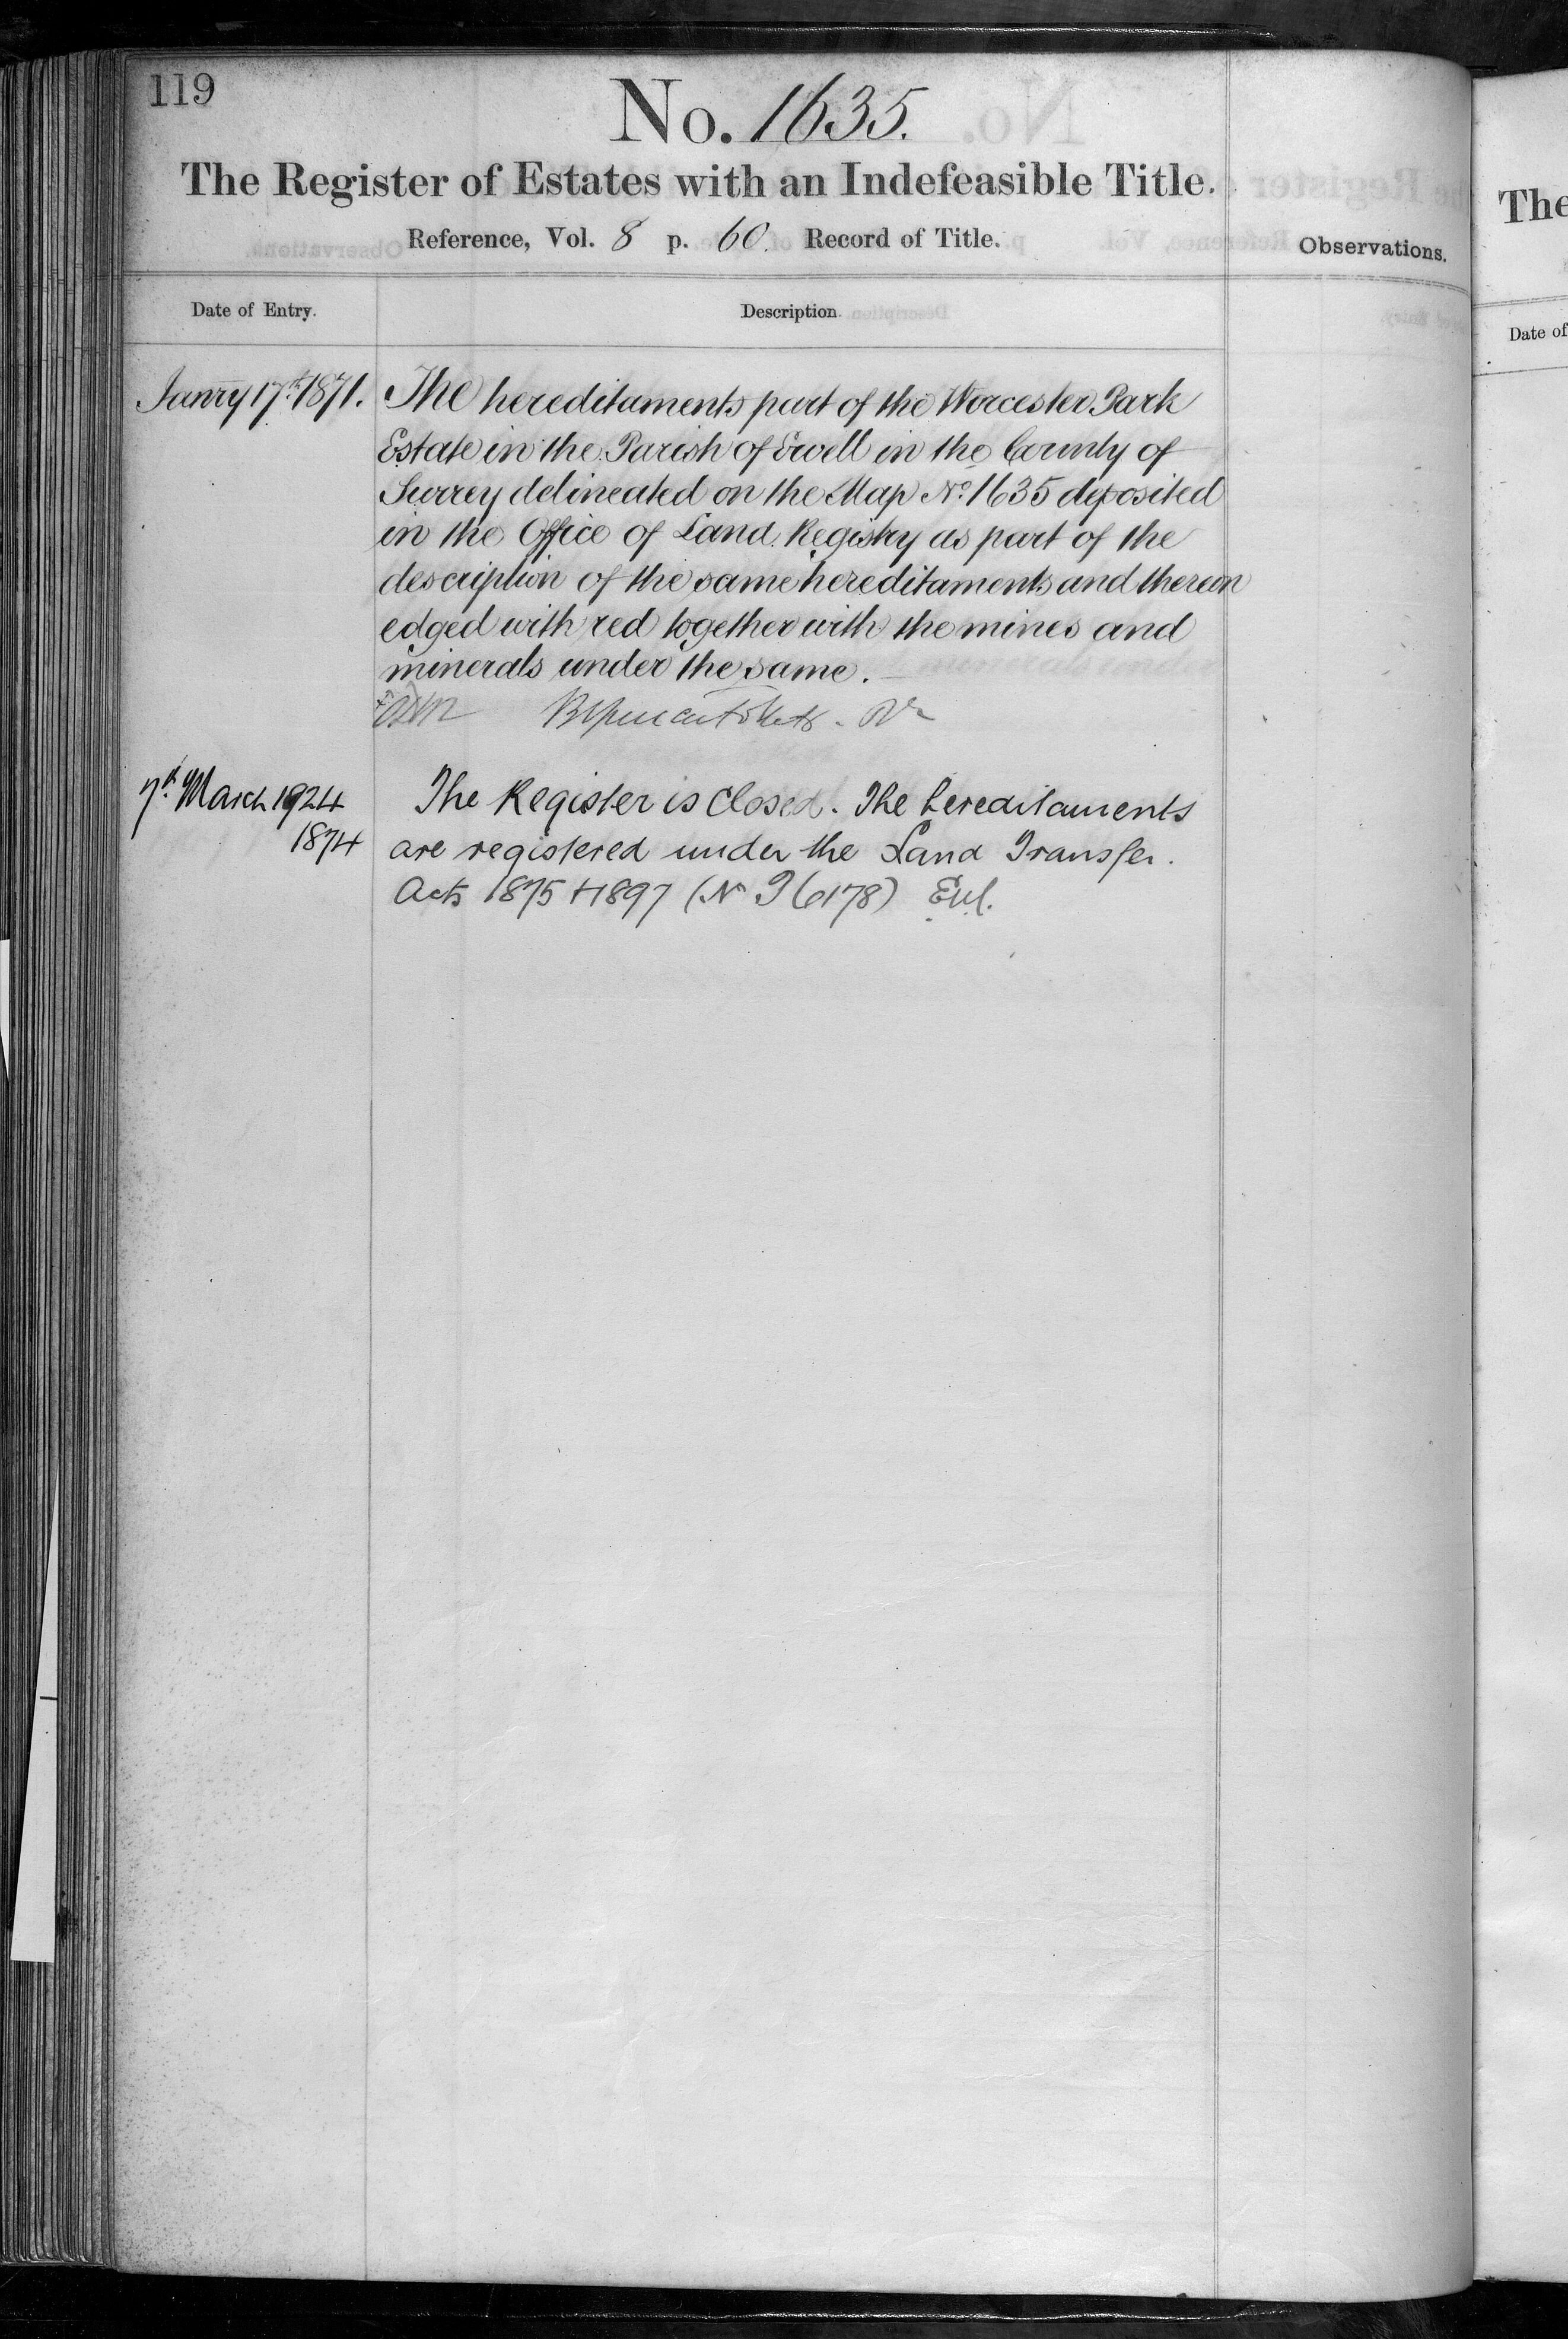 119
No. 1635.
The Register of Estates with an Indefeasible Title.
Reference, Vol. 8 p. 60. Record of Title.
Observations.
Date of Entry.
Description.
Janry 17th 1871.
The hereditaments part of the Worcester Park
Estate in the Parish of Ewell in the County of
Surrey delineated on the Map No. 1635 deposited
in the Office of Land Registry as part of the
description of the same hereditaments and therein
edged with red together with the mines and
minerals under the same.
7th March 1924
1874
The Register is closed. The hereditaments
are registered under the Land Transfer.
Acts 1875 & 1897 (No
The
Date of